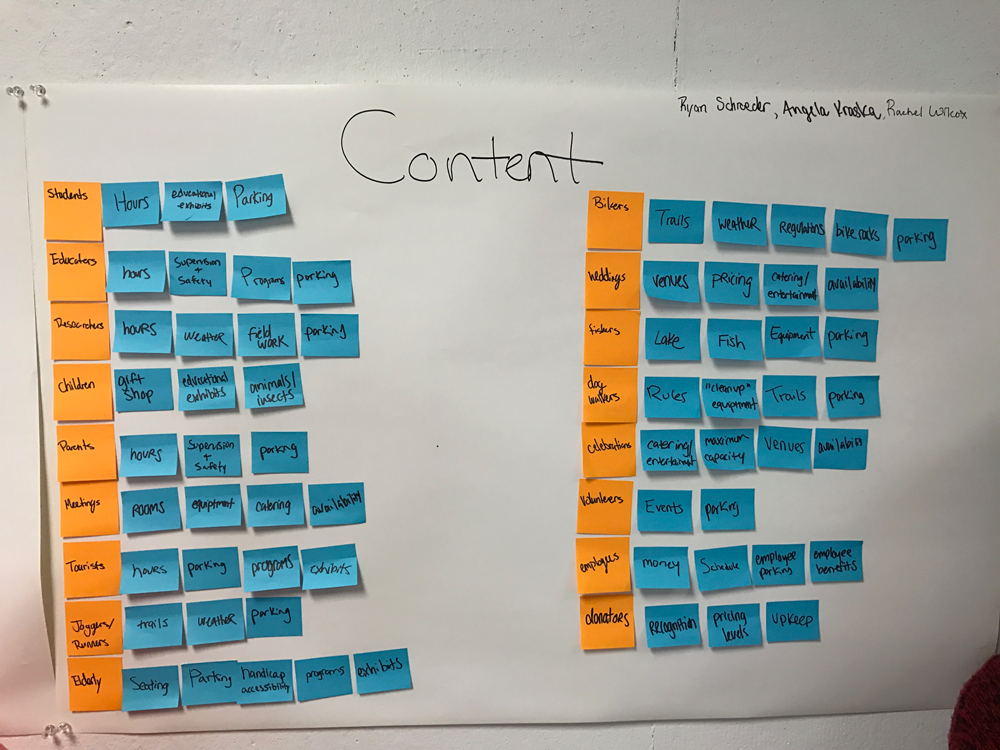 Ryan Schroeder, Angela Kraska, Rachel Wilcox
Content
Students
Hours
educational
exhibits
Parking
Educators
hours
Supervision
+
Safety
Programs
parking
Researchers
hours
weather
field
work
parking
Children
gift
shop
educational
exhibits
animals/
insects
Parents
hours
Supervision
+
Safety
parking
Meetings
rooms
equiptment
catering
availability
Tourists
hours
parking
programs
exhibits
Joggers/
Runners
trails
weather
parking
Elderly
Seating
Parking
handicap
accessibility
programs
exhibits
Bikers
Trails
weather
Regulations
bike racks
parking
weddings
venues
pricing
catering/
entertainment
availability
fishers
Lake
Fish
Equipment
parking
dog
walkers
Rules
"cleanup"
equiptment
Trails
parking
celebrations
catering/
entertainment
maximum
capacity
Venues
availability
Volunteers
Events
parking
employees
money
Schedule
employee
parking
employee
benefits
donators
recognition
pricing
levels
upkeep